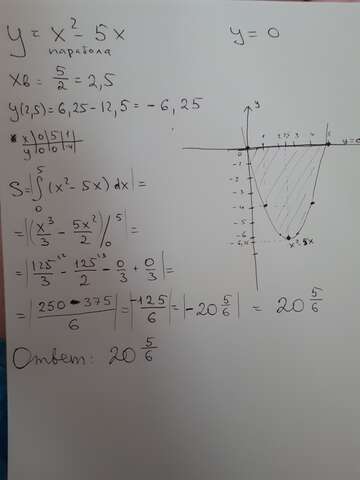 y = x² - 5x
y = 0
парабола
xв = 5/2 = 2,5
y(2,5) = 6,25 - 12,5 = -6,25
x | 0 | 5 | 1
y | 0 | 0 | -4
S = |∫₀⁵ (x² - 5x) dx| =
= |(x³/3 - 5x²/2) /₀⁵| =
= |125/3 ^\2 - 125/2 ^\3 - 0/3 + 0/3| =
= |250 - 375 / 6| = |-125/6| = |-20 5/6| = 20 5/6
Ответ: 20 5/6
y
1 2 2,5 3 4 5
y=0
0
-1
-2
-3
-4
-5
-6
-6,25
x²-5x